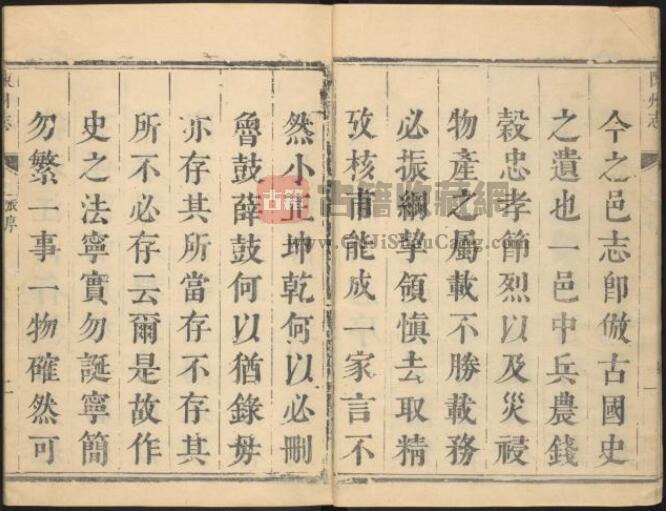 今之邑志卽倣古國史
之遺也一邑中兵農錢
穀忠孝節烈以及災祲
物產之屬載不勝載務
必振綱挈領慎去取精
攷核甫能成一家言不
然小正坤乾何以必刪
魯鼓薛鼓何以猶錄毋
亦存其所當存不存其
所不必存云爾是故作
史之法寧實勿誕寧簡
勿繁一事一物確然可
州志
序
一
古籍
古籍收藏網
www.GuJiShouCang.com